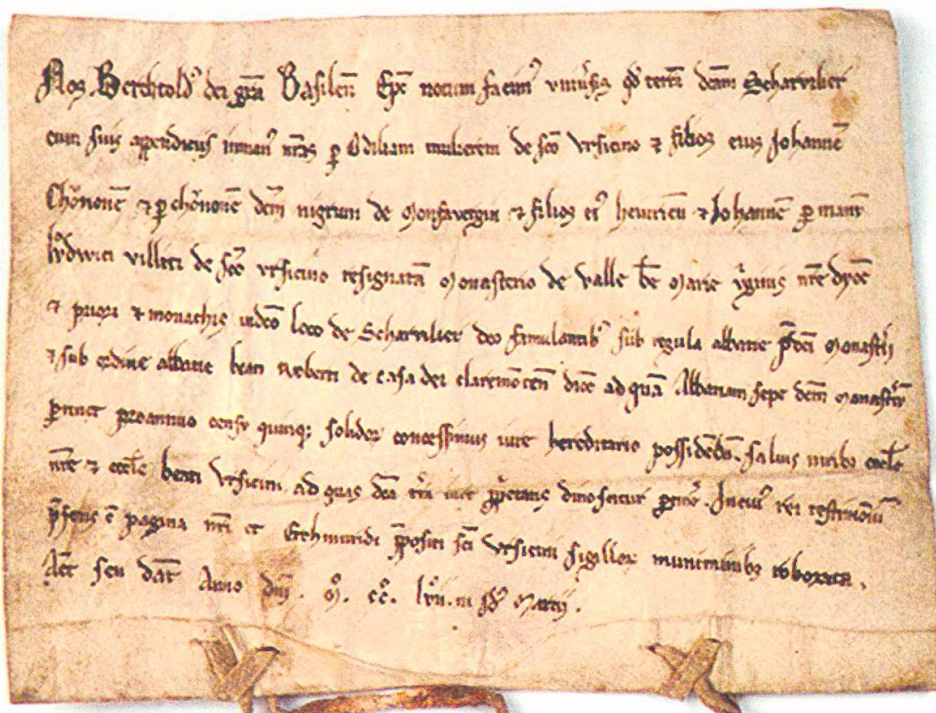 Nos Berchtold' dei gr̄a Basilen̄ Ep̄c notum facim' vniu̓sis qd̓ terrā dc̄am Scharvilier
cum suis appendiciis in man' nr̄as p̱ Odiliam mulierem de sc̄o Vrsicino ⁊ filios eius Johannē
Chȯnonē ⁊ p̱ chȯnonē dc̄m nigrum de Monsavergin ⁊ filios ei' heinricū ⁊ Johannē p̱ man'
lvͦdwici villici de sc̄o vrsicino resignatā Monasterio de valle b̄e Marie v̓ginis nr̄e dyoc̄
⁊ priori ⁊ monachis in dc̄o loco de Scharvilier deo famulantib' sub regula abbatie p̄dc̄i Monast̓ii
⁊ sub ordine abbatie beati de casa dei claremōten̄ dioc̄ ad quā Abbatiam sepe dc̄m Monast̓iū
p̱tinet pro annuo censu quinq; solidor̄ concessimus iure hereditario possidēdā. saluis iurib; eccl̄e
nr̄e ⁊ eccl̄e beati Vrsicini, ad quas dc̄a t̓ra iure p̱p̓etatis dinoscitur p̱tin̓e. In cui' rei testimoniū
p̄sens ē pagina nr̄i et p̄positi sc̄i Vrsicini sigillor̄ munimimib; roborata.
Act̄ seu dat̄ Anno dn̄i. M̊. cc̊. lv̊ii. iii Id' Marcii.